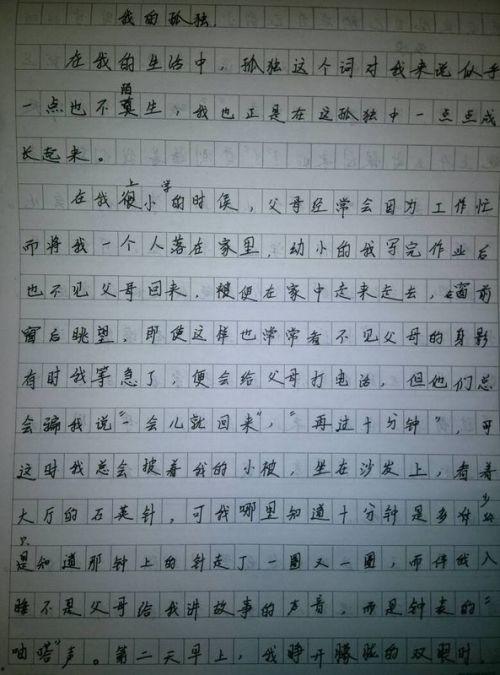 我的孤独
在我的生活中，孤独这个词对我来说似乎
一点也不陌生，我也正是在这孤独中一点点成
长起来。
在我上小学的时侯，父母经常会因为工作忙
而将我一个人落在家里，幼小的我写完作业后
也不见父母回来，便在家中走来走去，窗前
窗后眺望，即使这样也常常看不见父母的身影
有时我等急了，便会给父母打电话，但他们总
会骗我说“一会儿就回来”，“再过十分钟”，可
这时我总会披着我的小被，坐在沙发上，看着
大厅的石英钟，可我哪里知道十分钟是多久
只知道那钟上的针走了一圈又一圈，而伴我入
睡不是父母给我讲故事的声音，而是钟表的“
嗒”声。第二天早上，我睁开朦胧的双眼时，